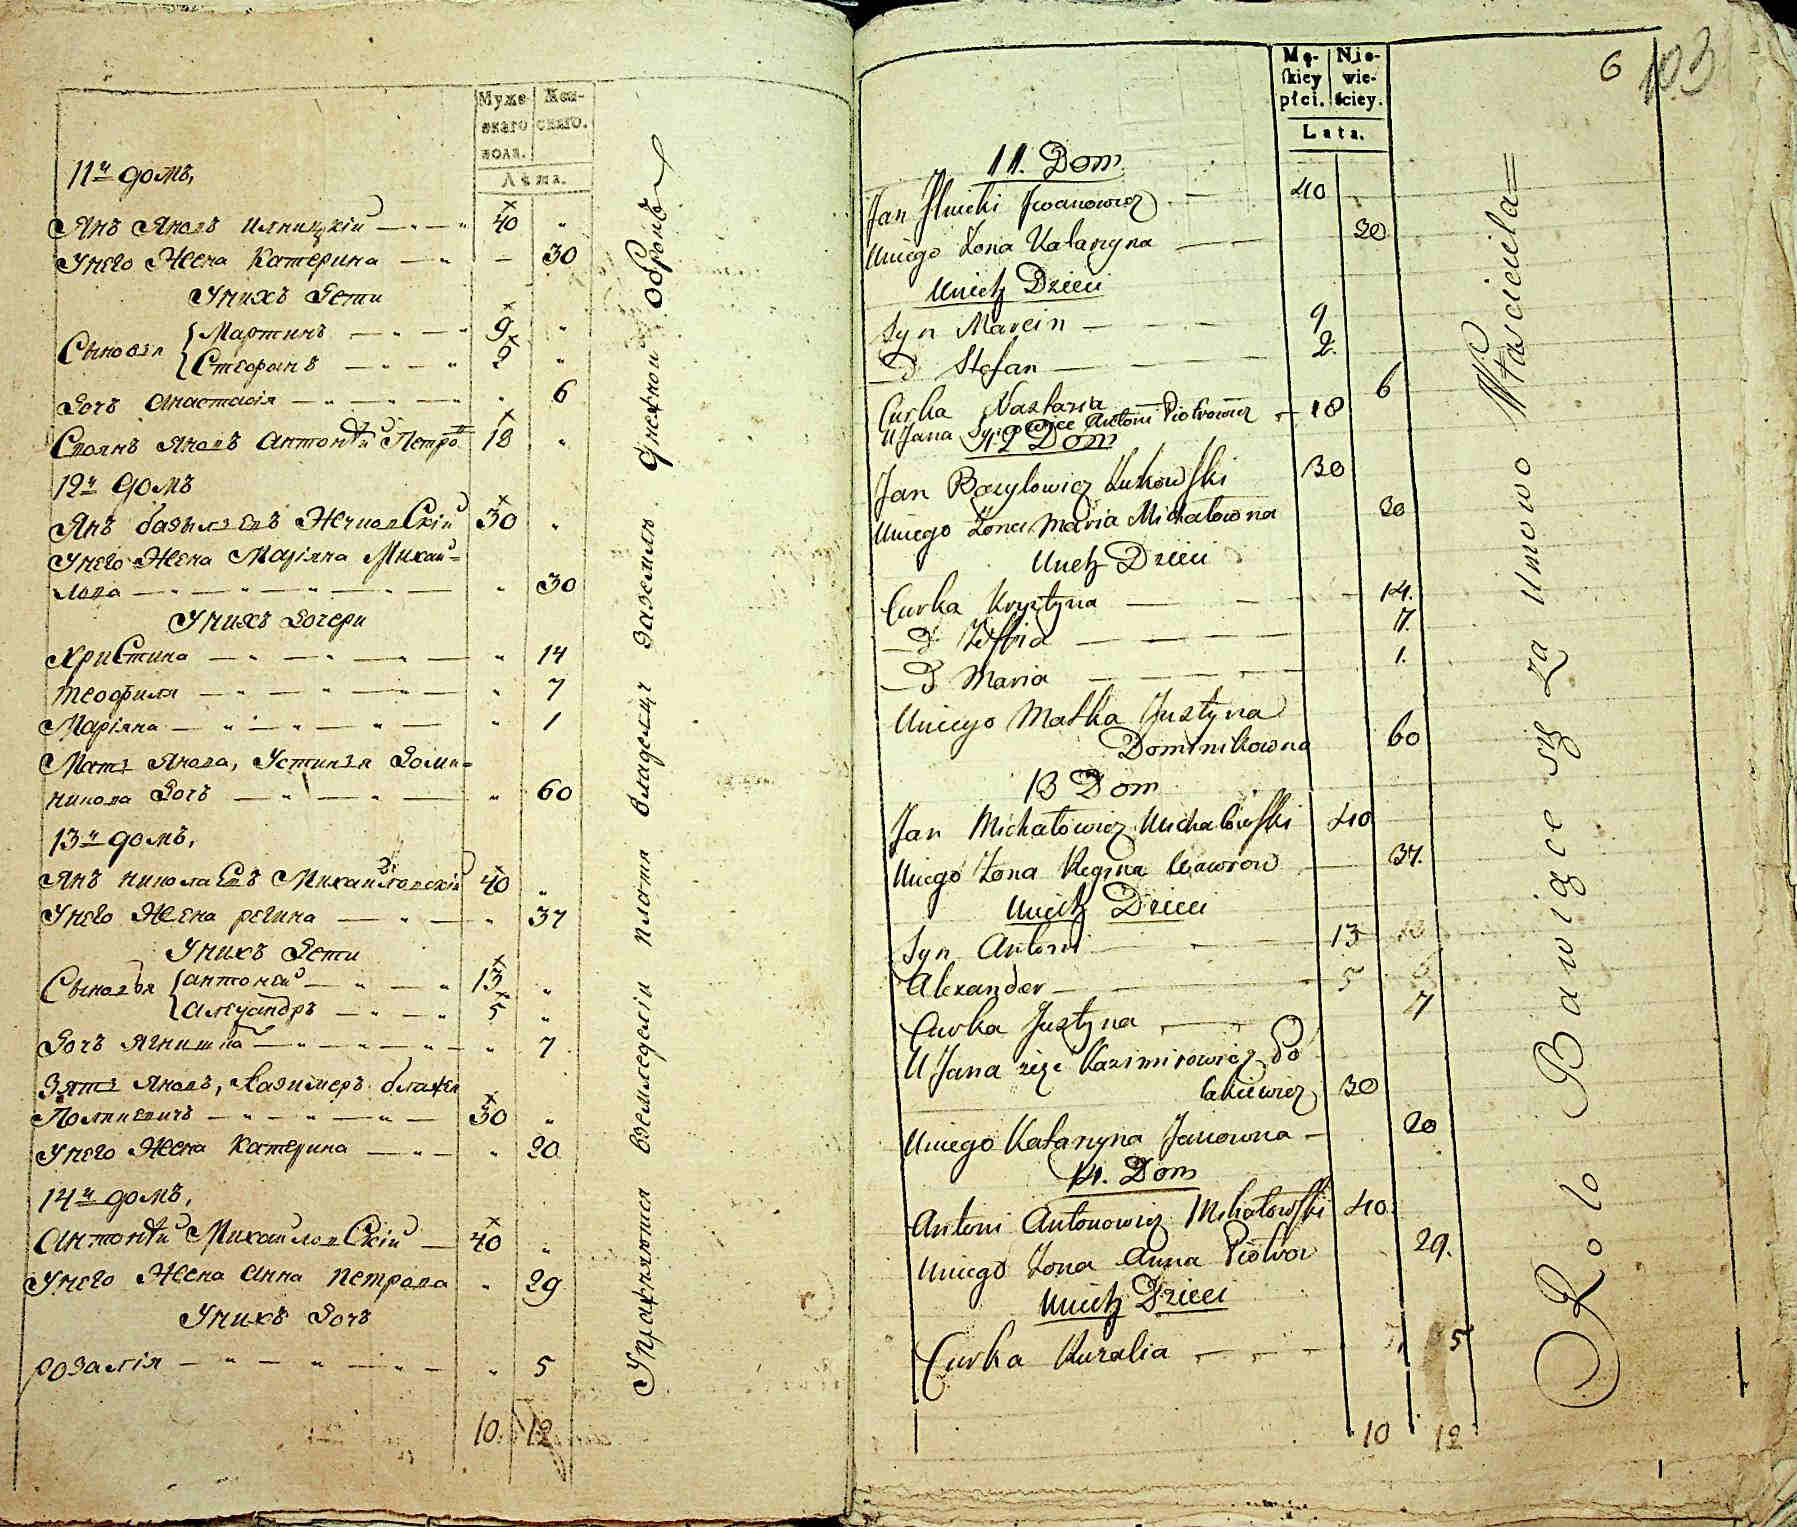 Муже-
скаго
пола.
Жен-
скаго.
Лѣта.
11й домъ,
Янъ Яновъ Илницкiй — 40 "
У него Жена Катерина — 30
У нихъ Дети
Сыновья { Мартинъ — 9 "
{ Стефанъ — 2 "
Дочь Анастасiя — " 6
Яновъ Антонiй Петро 18 "
12й домъ
Янъ базылевъ 30 "
У него Жена Марiяна Михай-
лова — " 30
У нихъ Дочери
Христина — " 14
Теофиля — " 7
Марiяна — " 1
Мать Янова, Устинiя Доми-
никова Дочь — " 60
13й домъ,
Янъ николаевъ Михайловскiй 40 "
У него Жена регина — " 37
У нихъ Дети
Сыновья { антонiй — 13 "
{ Александръ — 5 "
Дочь Ягнишка — " 7
Зять Яновъ, Казимеръ
— 30 "
У него Жена Катерина — " 20
14й домъ,
Антонiй Михайловскiй — 40 "
У него Жена Анна петрова " 29
У нихъ Дочь
розалiя — " 5
10. 12
Упражняются вземледелiи платя владельцу заземлю оброкъ
6 103
Mę-
skiey
płci.
Nie-
wie-
ściey.
Lata.
11. Dom
Jan Ilnicki Iwanowicz — 40
U niego Żona Katarzyna — 30
U nich Dzieci
Syn Marcin — 9
— D Stefan — 2.
Curka Nastazia — 6
U Jana Antoni Piotrowicz — 18
12 Dom
Jan Bazylowicz 30
U niego Żona Maria Michałowna 30
U nich Dzieci
Curka Krystyna — 14.
— D Zoffia — 7.
— D Maria — 1.
U niego Matka Justyna
Dominikowna 60
13 Dom
Jan Michałowicz Michałowski 40
U niego Żona Regina 37.
U nich Dzieci
Syn Antoni — 13
Alexander — 5
Curka Justyna — 7
U Jana zięć Kazimirowicz Po
lakiewicz 30
U niego Katarzyna Janowna — 20
14. Dom
Antoni Antonowicz Michałowski 40
U niego Żona Anna Piotrow 29.
U nich Dzieci
Curka Ruzalia — 5
10 12
Rolo Bawiące się za Umowo Właściciela=